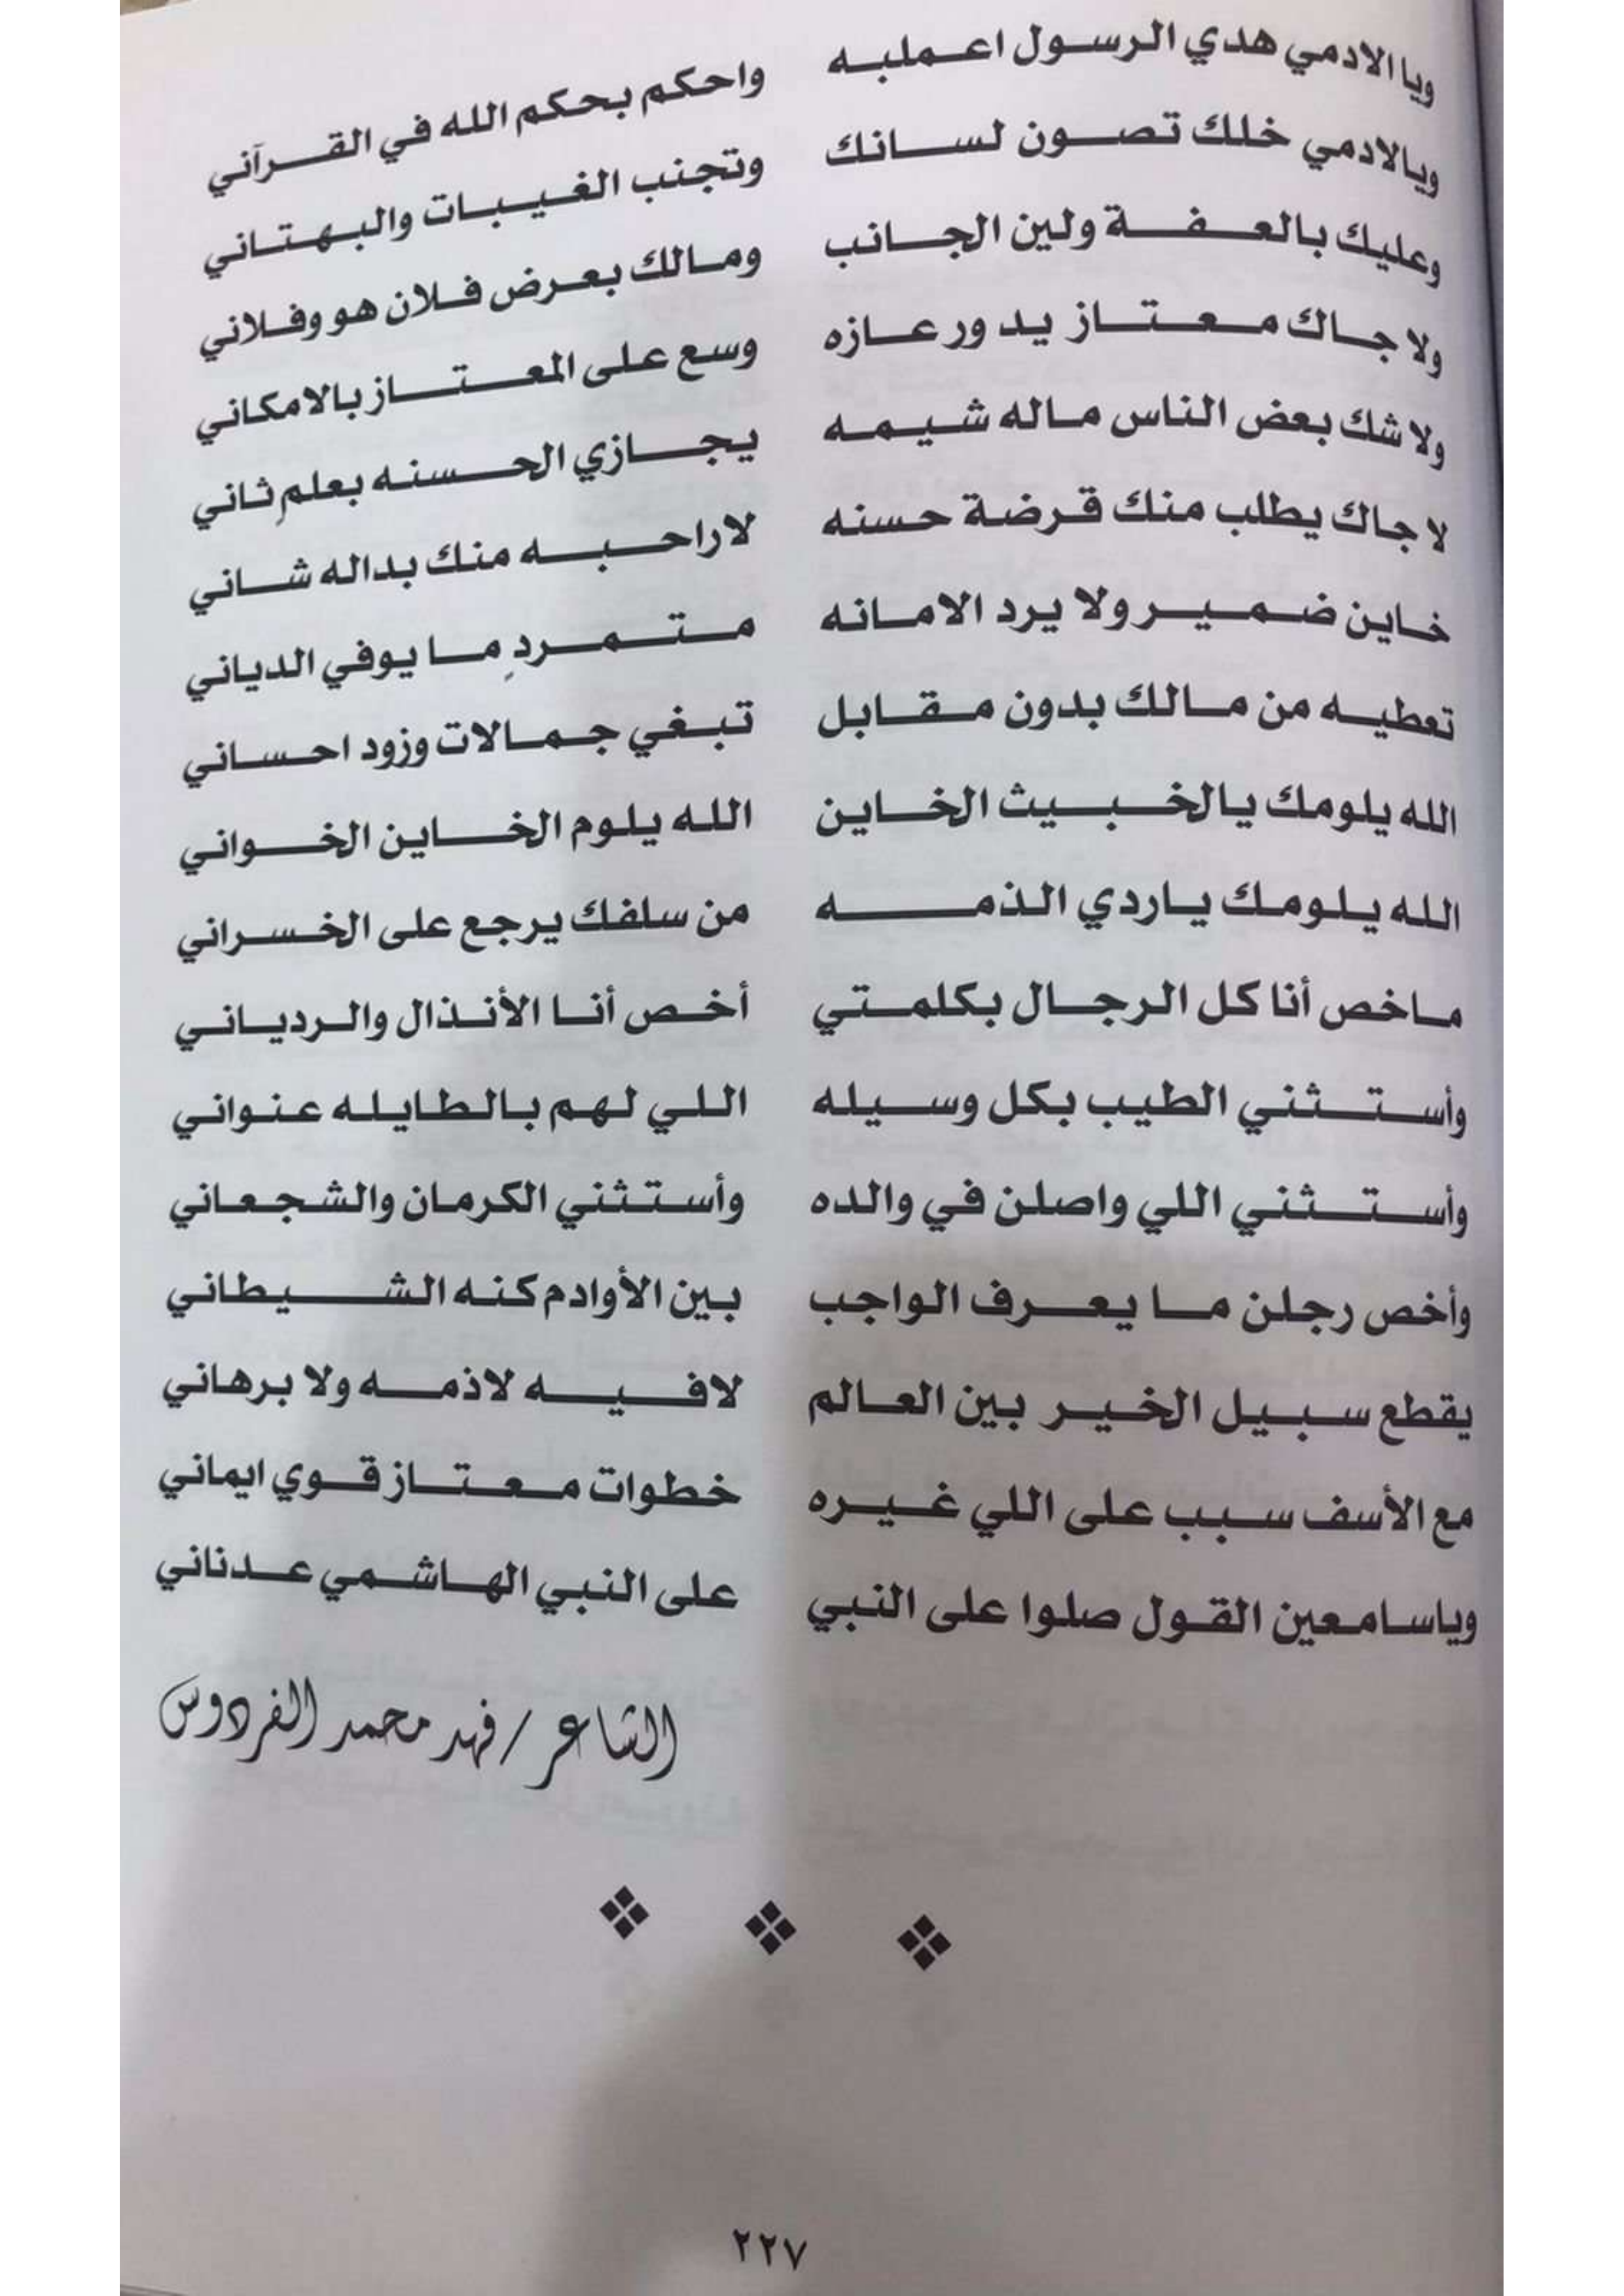 ويا الادمي هدي الرسول اعملبه واحكم بحكم الله في القرآني
ويالادمي خلك تصون لسانك وتجنب الغيبات والبهتاني
وعليك بالعفة ولين الجانب ومالك بعرض فلان هو وفلاني
ولا جاك معتاز يدور عازه وسع على المعتاز بالامكاني
ولا شك بعض الناس ماله شيمه يجازي الحسنه بعلمٍ ثاني
لا جاك يطلب منك قرضة حسنه لا راحبه منك بداله شاني
خاين ضمير ولا يرد الامانه متمردٍ ما يوفي الدياني
تعطيه من مالك بدون مقابل تبغي جمالات وزود احساني
الله يلومك يا الخبيث الخاين الله يلوم الخاين الخواني
الله يلومك ياردي الذمه من سلفك يرجع على الخسراني
ماخص أنا كل الرجال بكلمتي أخص أنا الأنذال والردياني
وأستثني الطيب بكل وسيله اللي لهم بالطايله عنواني
وأستثني اللي واصلن في والده وأستثني الكرمان والشجعاني
وأخص رجلن ما يعرف الواجب بين الأوادم كنه الشيطاني
يقطع سبيل الخير بين العالم لافيه لاذمه ولا برهاني
مع الأسف سبب على اللي غيره خطوات معتاز قوي ايماني
وياسامعين القول صلوا على النبي على النبي الهاشمي عدناني
الشاعر / فهد محمد الفردوس
٢٢٧